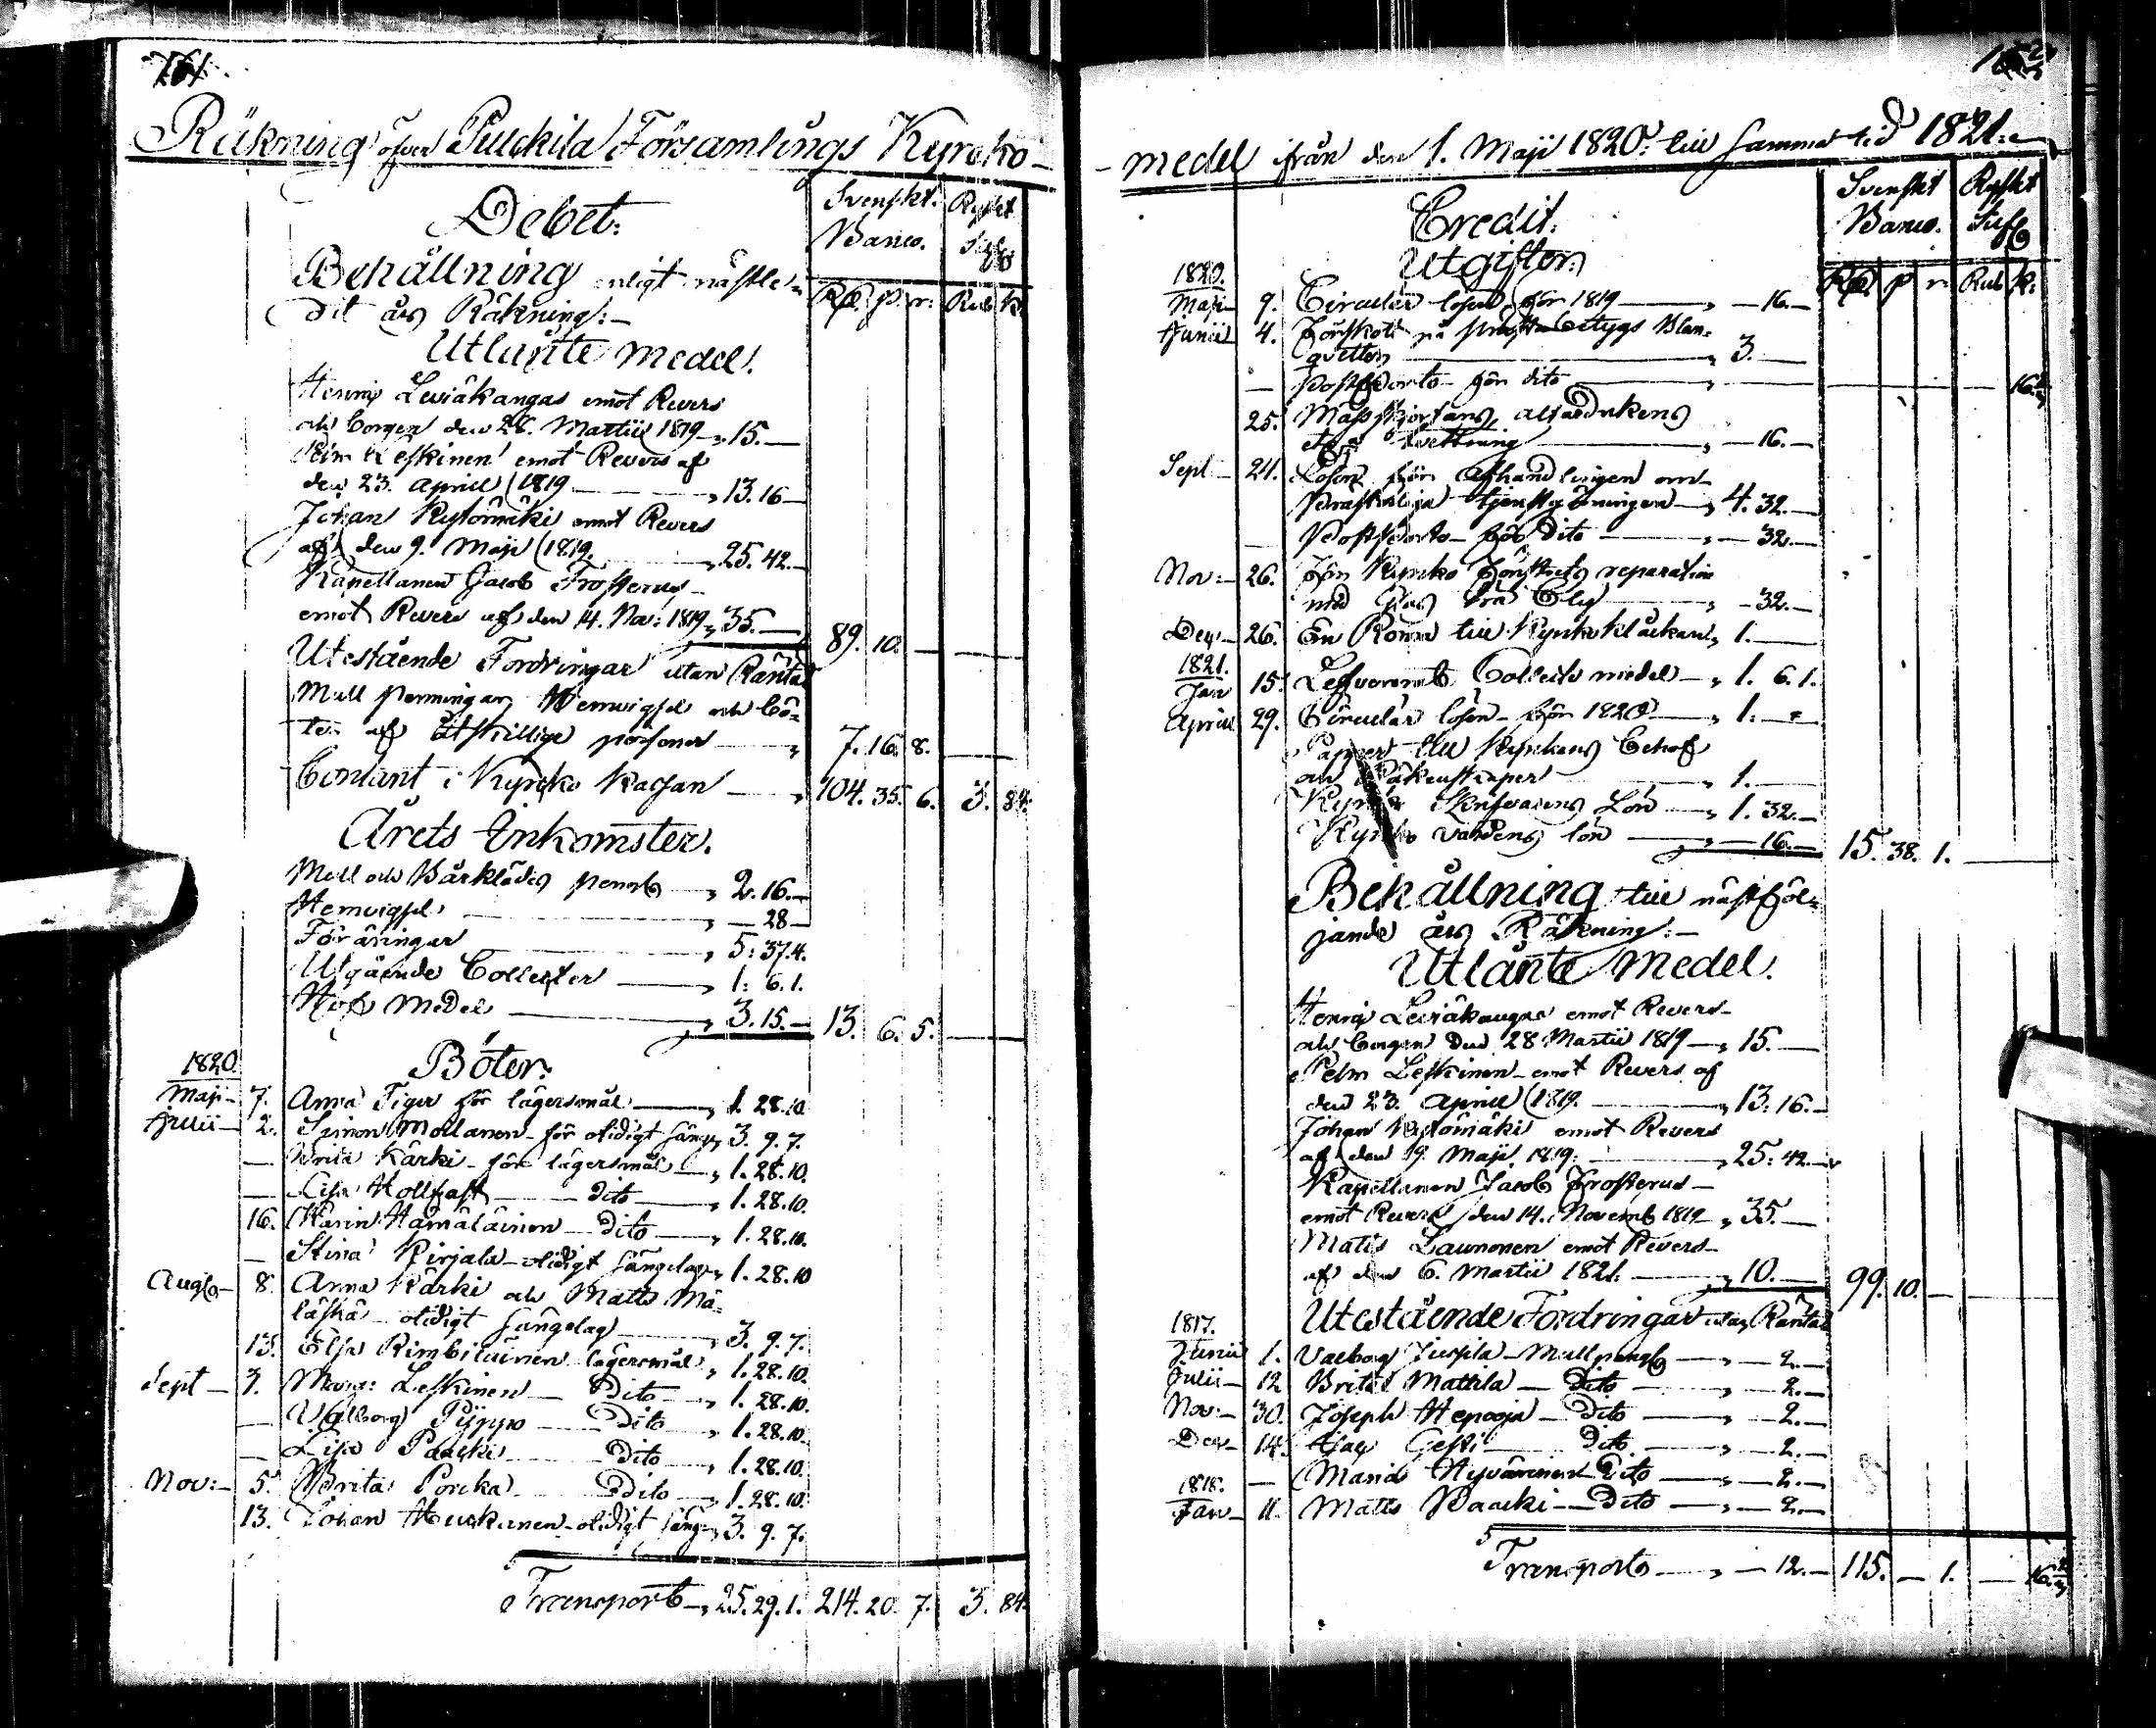 161
Räkning öfver Pulckila Församlings Kyrcko-
Debet.
Svenskt. Banco.
Ryskt
Rd. s. r. Rub. k.
Behållning enligt nästle-
dit års Räkning:-
Utlånte medel.
Henric Leviäkangas emot Revers
och Borgen den 28. Martii 1819 - 15. -
Pehr Leskinen emot Revers af
den 23. Aprill 1819 - 13. 16 -
Johan Kylömäki emot Revers
af den 9. Maji 1819. - 25. 42. -
Kapellanen Jacob Frosterus -
emot Revers af den 14. Nov: 1819 - 35. - 89. 10. -
Utestående Fordringar utan Räntor
Mull penningar, Hemvigsel och Bö-
ter af åtskillige personer - 7. 16. 8. -
Contant i Kyrcko Kassan - 104. 35. 6. 3. 84.
Årets Inkomster.
Mull och Bårklädes - 2. 16. -
Hemvigsel - 28 -
Föräringar - 5: 37. 4.
Utgående Collecter - 1: 6. 1.
Håf Medel - 3. 15. - 13. 6. 5. -
Böter.
1820.
Maji - 7. Anna Tiger för lägersmål - 1. 28. 10.
Julii - 2. Simon Mollanen - för otidigt säng. 3. 9. 7.
- Brita Kärki - för lägersmål - 1. 28. 10.
- Lisa Hollfast - dito - 1. 28. 10.
16. Karin Hämäläinen - Dito - 1. 28. 10.
- Stina Kirjala - otidigt sängelag - 1. 28. 10
Aug. - 8. Anna Kärki och Matts Mä-
läskä - otidigt sängelag - 3. 9. 7.
13. Elsa - lägersmål - 1. 28. 10.
Sept - 3. Marg: Leskinen - Dito - 1. 28. 10.
- Valborg Pyppö - Dito - 1. 28. 10.
- Lisa Paacki - Dito - 1. 28. 10.
Nov: - 5. Brita - Dito - 1. 28. 10.
13. Johan - otidigt säng. 3. 9. 7.
Transport - 25. 29. 1. 214. 20. 7. 3. 84.
- medel ifrån den 1. Maji 1820. till samma tid 1821.
Credit.
Svenskt Banco.
Ryskt
Rd. s. r. Rub. k.
Utgifter.
1820.
Maji - 9. Circulär lösen för 1819 - 16. -
Junii - 4. Förskott på Blan-
qvetter - 3. -
- Postporto för dito - 16 2/7
25. Mässkjortans, altardukens
tvettning - 16. -
Sept - 24. Lösen för Afhandlingen om
Prästerliga tjenstgöringen - 4. 32. -
- Postporto för Dito - 32. -
Nov: - 26. För Kyrcko Fönstrets reparation
med glas - 32. -
Dec. - 26. En till Kyrko klåckan, 1. -
1821.
Jan 15. Lefvererat Collecte medel - 1. 6. 1.
Aprill 29. Circulär lösen - för 1820 - 1. -
Papper till Kyrkans behof
och Räkenskaper - 1. -
Lön - 1. 32. -
Kyrko vaktens lön - 16. - 15. 38. 1. -
Behållning till nästföl-
jande års Räkning:-
Utlånte Medel.
Henric Leviäkangas emot Revers -
och Borgen den 28 Martii 1819 - 15. -
Pehr Leskinen - emot Revers af
den 23. Aprill 1819. - 13. 16. -
Johan Kylömäki emot Revers
af den 9. Maji 1819. - 25: 42. -
Kapellanen Jacob Frosterus -
emot Revers den 14. Novemb 1819 - 35. -
Matts Launonen emot Revers -
af den 6. Martii 1821. - 10. - 99. 10. -
Utestående Fordringar utan Räntor
1817.
Junii 1. Valborg - Mullpeng. - 2. -
Julii - 12 Brita Mattila - Dito - 2. -
Nov: - 30. Joseph Hepooja - Dito - 2. -
Dec. - 14. Isac - Dito - 2. -
- Maria Hyvärinen Dito - 2. -
1818.
Jan - 11. Matts Baacki - Dito - 2. -
Transport - 12. - 115. - 1. - 16 2/7